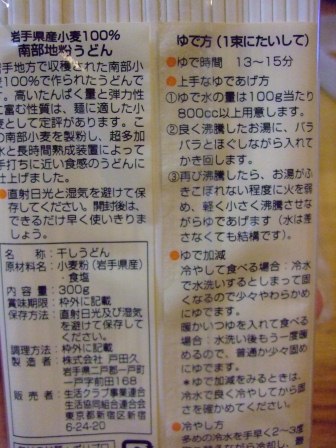 岩手県産小麦100%
南部地粉うどん
岩手地方で収穫された南部小
100%で作られたうどんで
す。高いたんぱく量と弾力性
に富む性質は、麺に適した小
麦として定評があります。こ
の南部小麦を製粉し、超多加
水と長時間熟成装置によって
手打ちに近い食感のうどんに
仕上ました。
●直射日光と湿気を避けて保
存してください。開封後は、
できるだけ早く使いきりま
しょう。
名称:干しうどん
原材料名:小麦粉(岩手県産)
・食塩
内容量:300g
賞味期限:枠外に記載
保存方法:直射日光及び湿気
を避けて保存し
てください。
調理方法:枠外に記載
製造者:株式会社 戸田久
岩手県二戸郡一戸町
一戸字前田168
販売者:生活クラブ事業連合
生活協同組合連合会
東京都新宿区新宿
6-24-20
ゆで方(1束にたいして)
●ゆで時間 13〜15分
●上手なゆであげ方
①ゆで水の量は100g当たり
800cc以上用意します。
②良く沸騰したお湯に、バラ
バラとほぐしながら入れて
かき回します。
③再び沸騰したら、お湯がふ
きこぼれない程度に火を弱
め、軽く小さく沸騰させな
がらゆであげます(水は差
さなくても結構です)。
●ゆで加減
冷やして食べる場合:冷水
で水洗いするとしまって固
くなるので少々やわらかめ
にゆでます。
暖かいつゆを入れて食べる
場合:水洗い後もう一度暖
めるので、普通か少々固め
にゆでます。
*ゆで加減をみるときは、
冷水で良く冷やしてから固
さを確かめてください。
●冷やし方
多めの冷水を手早く2〜3度